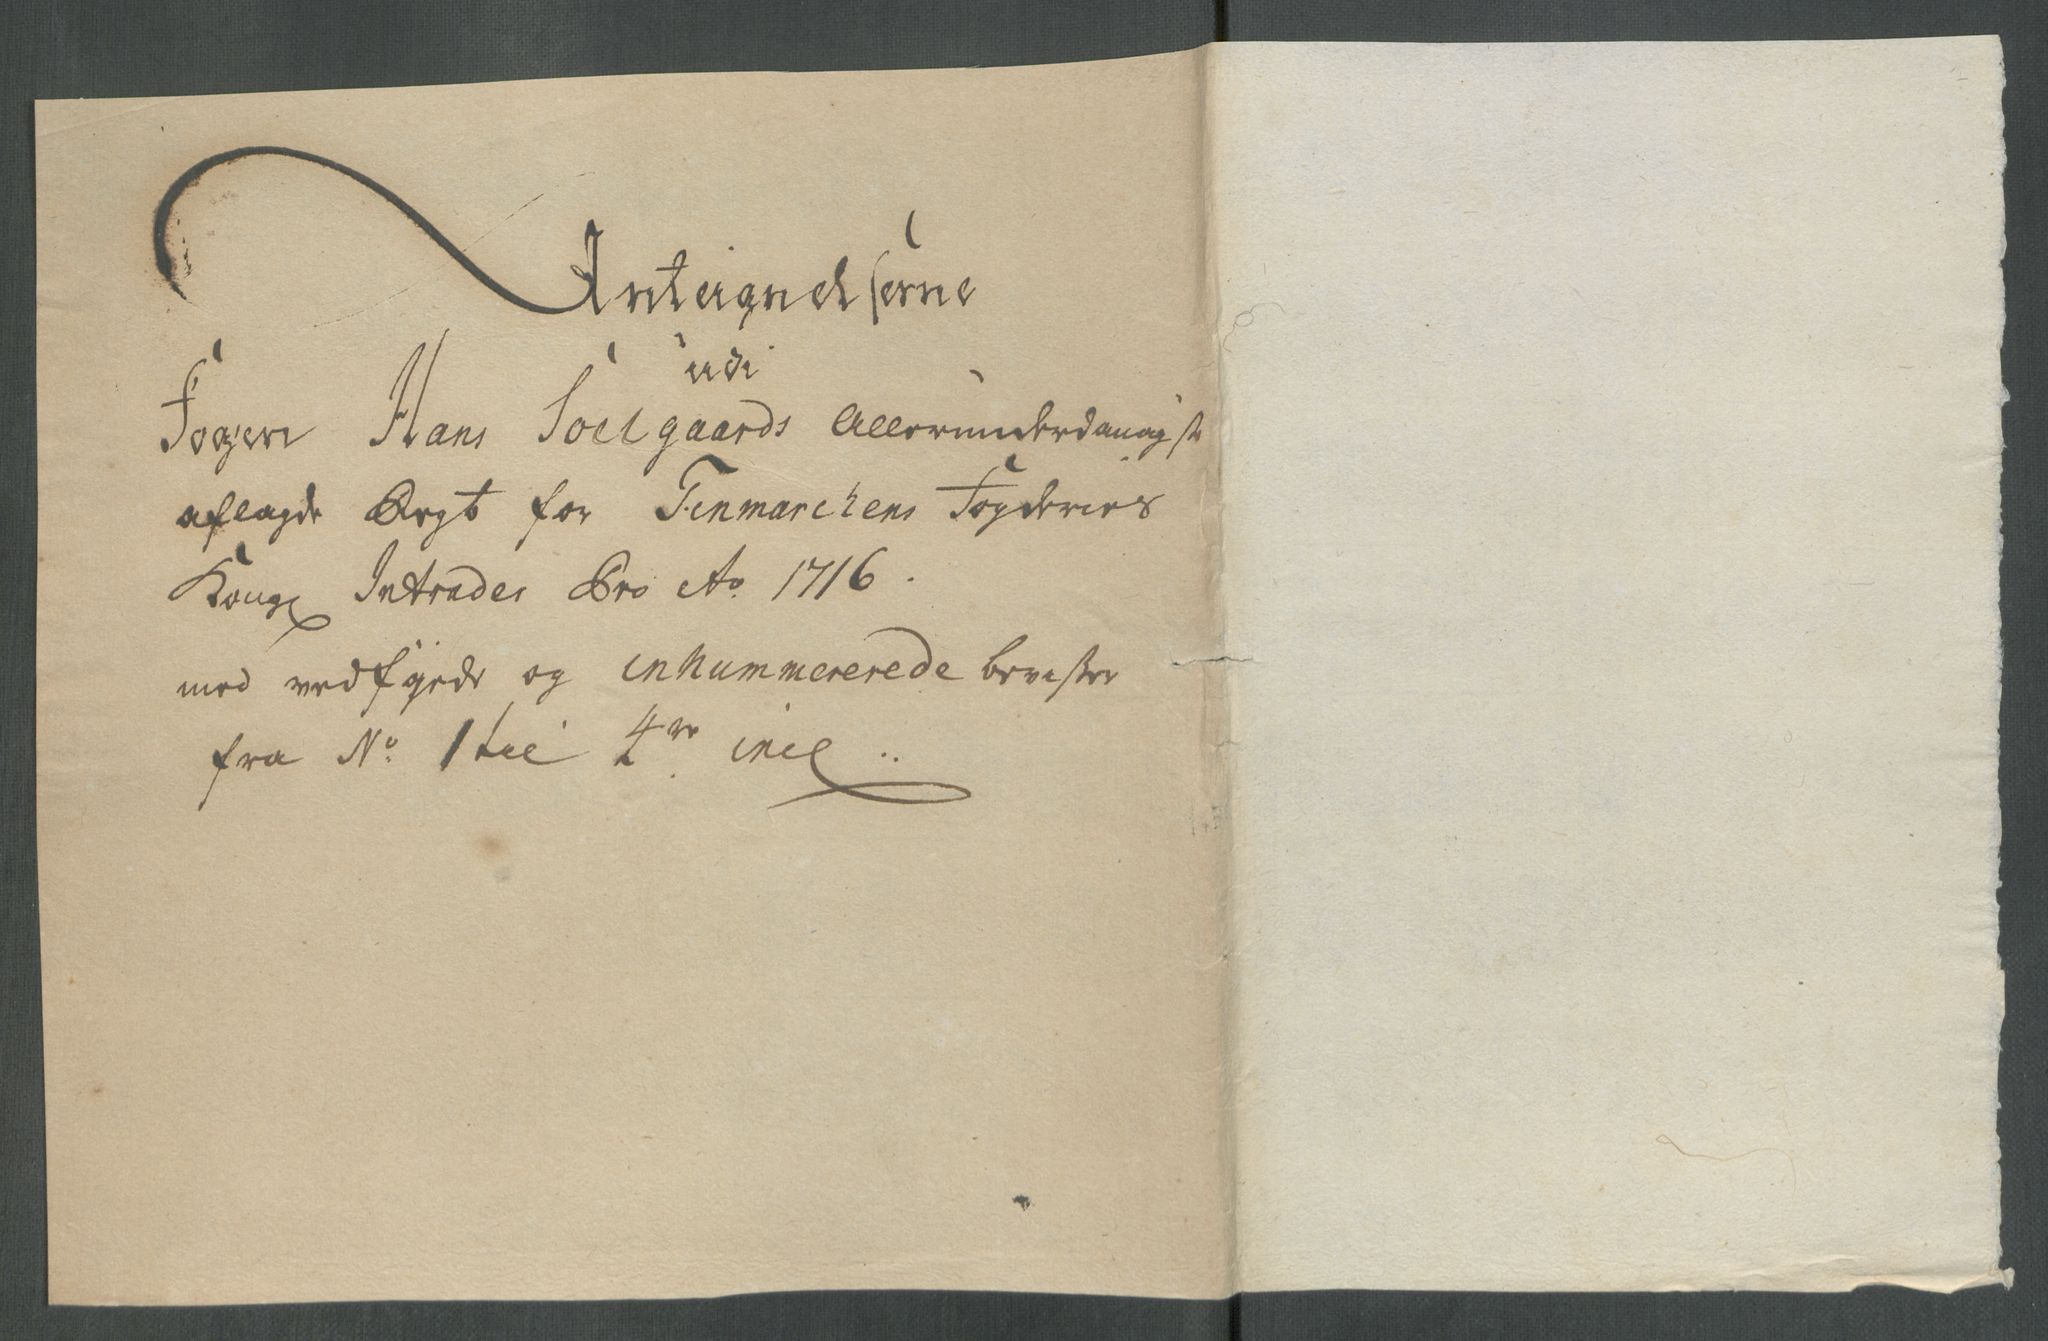 Anteignelserne
udi
Fogen Hans Soelgaards Allerunderdanigst
aflagde Regt for Finmarchens Fogderies
Kongl Intrader Pro Ao 1716.
med vedføyede og inNummererede beviiser
fra No. 1 till 4re incl..